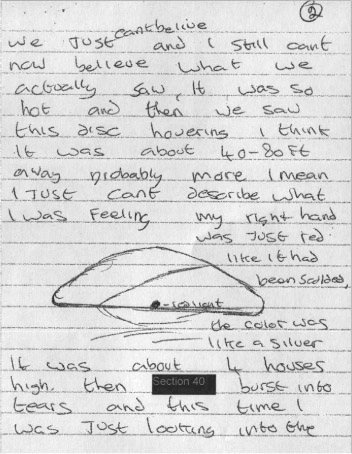 ②
cant belive
we Just and I still cant
now believe what we
actually saw, It was so
hot and then we saw
this disc hovering I think
It was about 40-80ft
away probably more I mean
I Just cant describe what
I was Feeling my right hand
was Just red.
like it had
been scalded,
the color was
like a silver
It was about 4 houses
high. then Section 40 burst into
tears and this time I
was Just looking into the